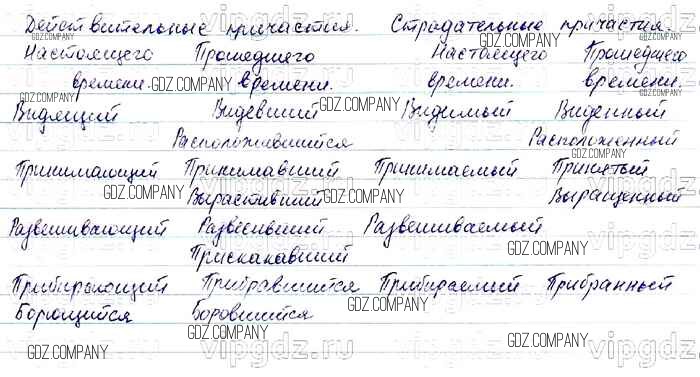 Действительные причастия. Страдательные причастия.
Настоящего Прошедшего Настоящего Прошедшего
времени. времени. времени. времени.
GDZ.COMPANY GDZ.COMPANY GDZ.COMPANY GDZ.COMPANY
Видящий Видевший Видимый Виденный
Расположившийся Расположенный
GDZ.COMPANY GDZ.COMPANY GDZ.COMPANY
Принимающий Принимавший Принимаемый Принятый
GDZ.COMPANY GDZ.COMPANY GDZ.COMPANY
Вырастивший Выращенный
Развешивающий Развесивший Развешиваемый
GDZ.COMPANY GDZ.COMPANY
Прискакавший
Прибирающий Прибравшийся Прибираемый Прибранный
GDZ.COMPANY GDZ.COMPANY
Борющийся Боровшийся
GDZ.COMPANY GDZ.COMPANY GDZ.COMPANY
vipgdz.ru vipgdz.ru